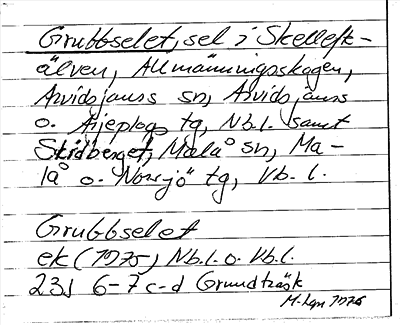 Grubbselet, sel i Skellefte-
älven, Allmänningsskogen,
Arvidsjaurs sn, Arvidsjaurs
o. Arjeplogs tg, Nb.l. samt
Stridberget, Malå sn, Ma-
lå o. Norsjö tg, Vb. l.
Grubbselet
ek (1975) Nb.l. o. Vb.l.
23J 6-7 c-d Grundträsk
1976